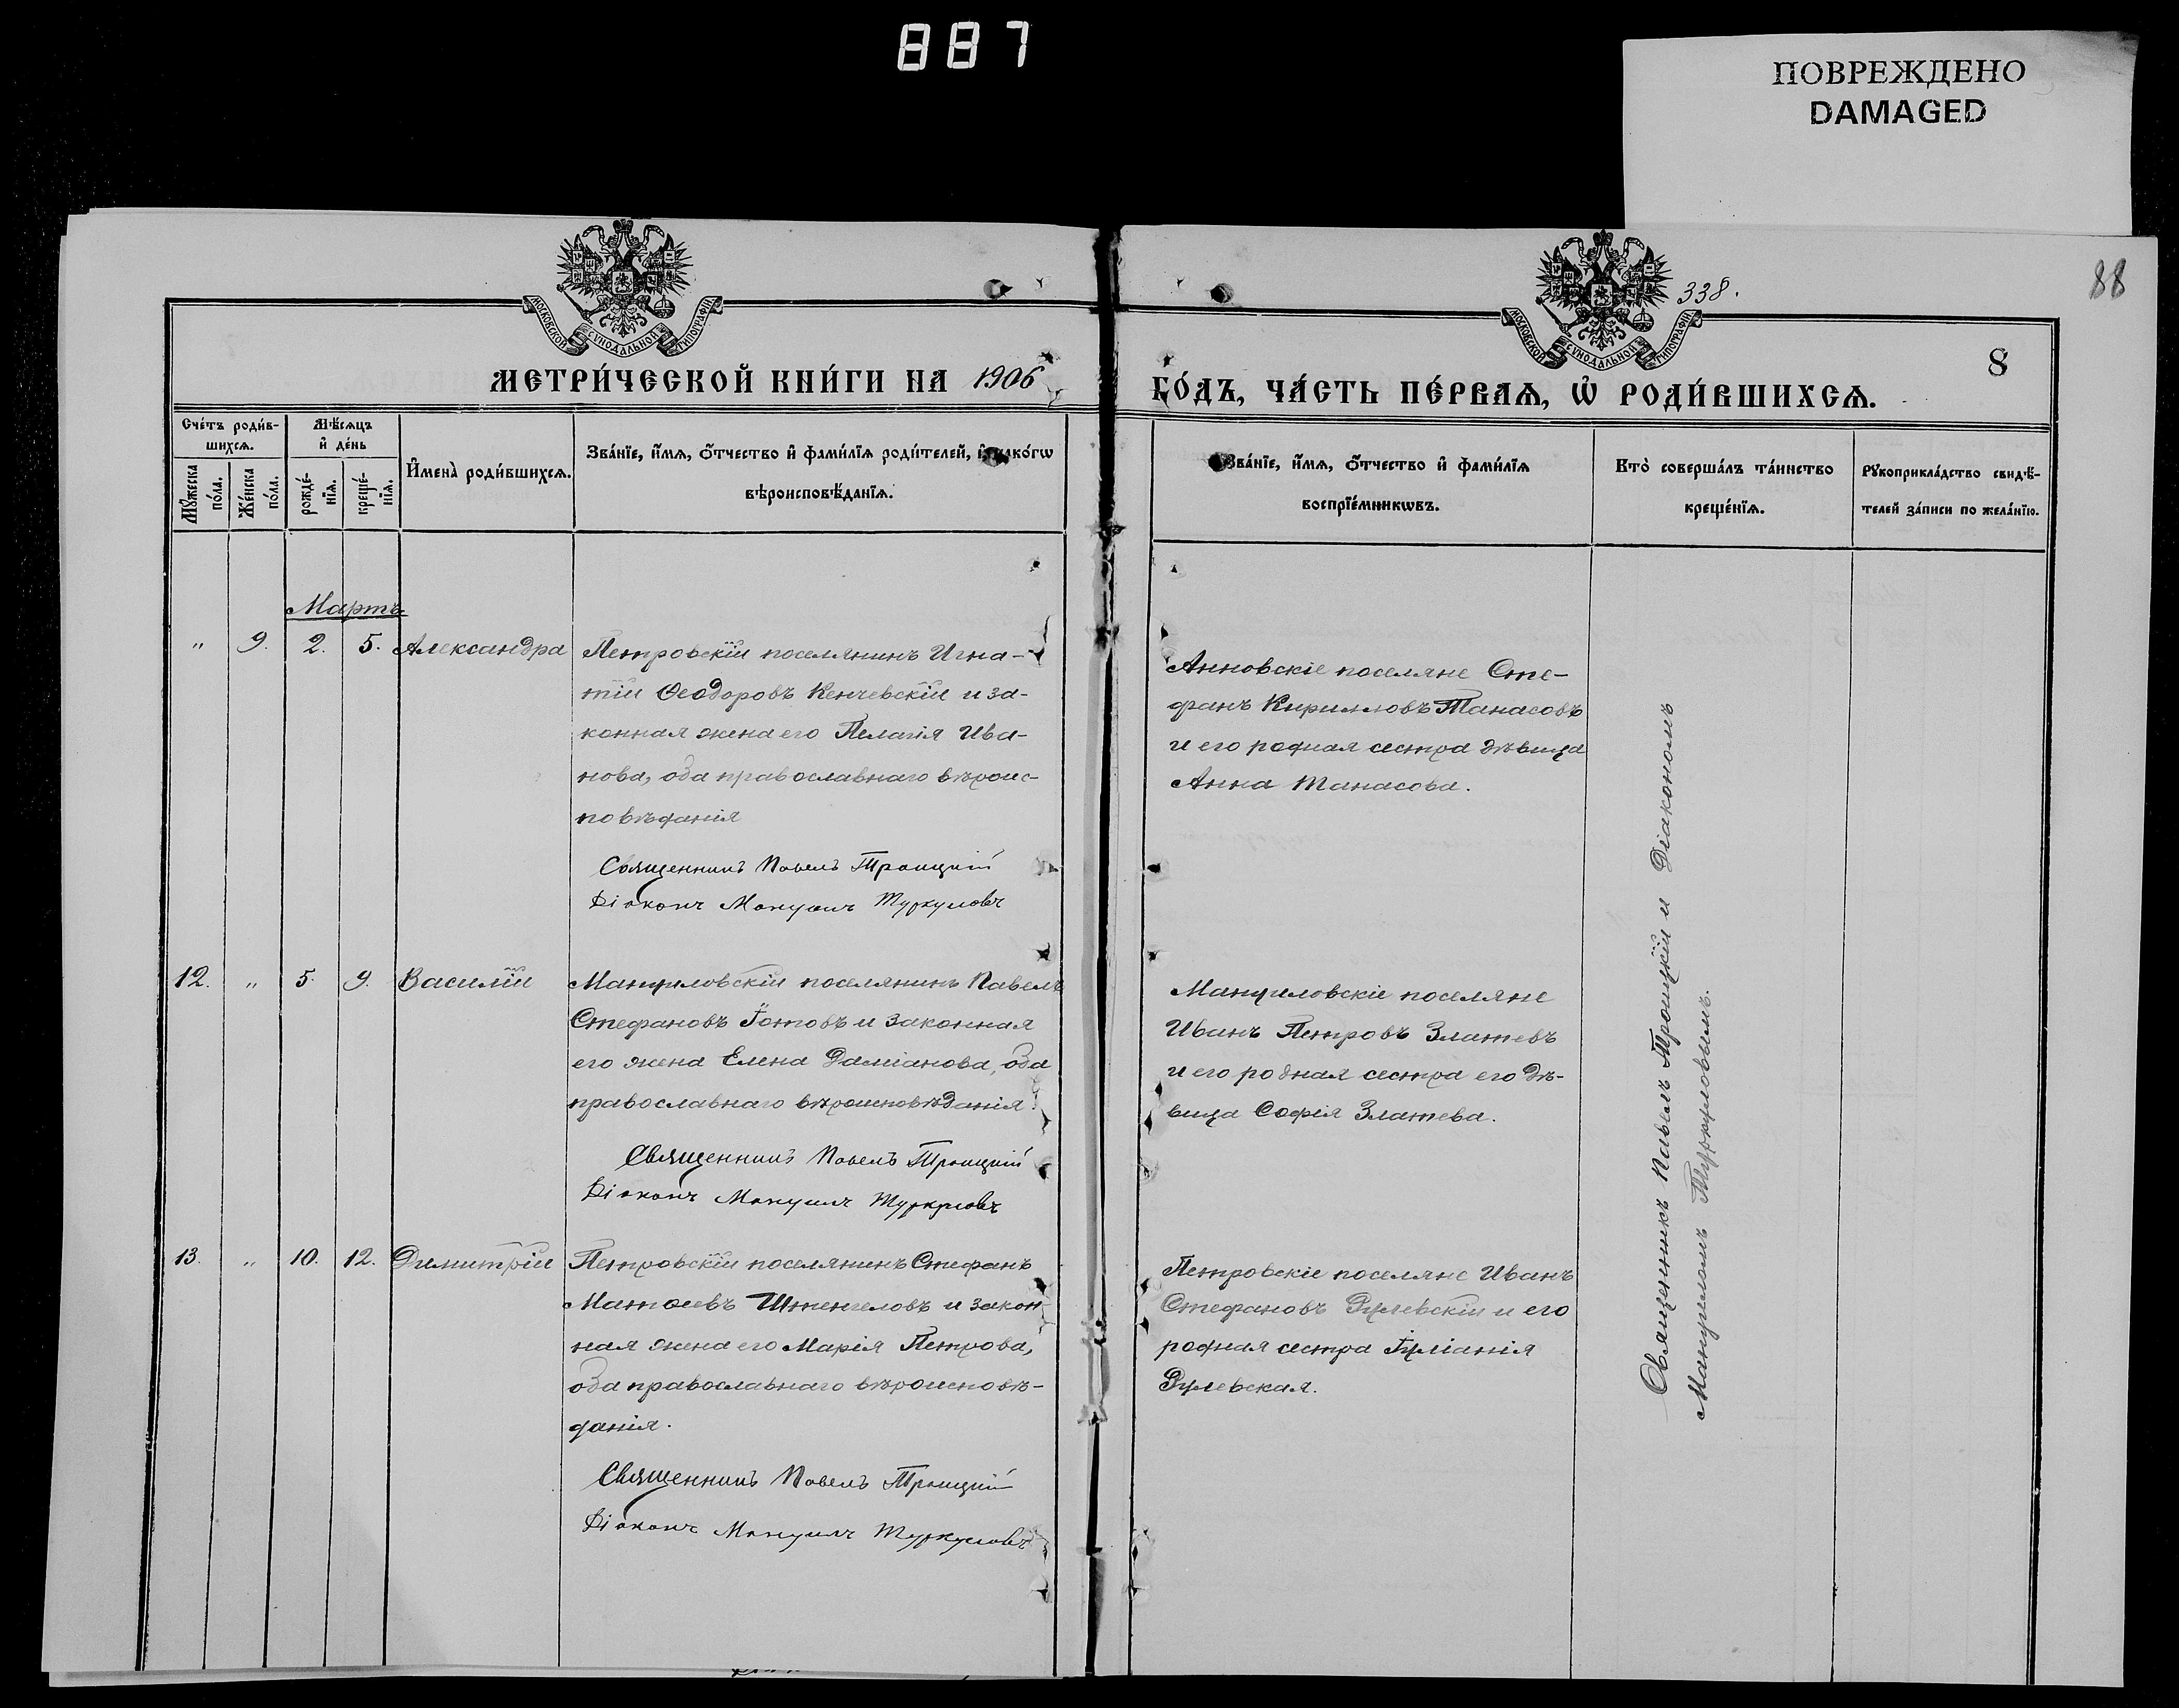 887
ПОВРЕЖДЕНО
DAMAGED
88
338.
8
МОСКОВСКОЙ СѴНОДАЛЬНОЙ ТИПОГРАФІИ
МОСКОВСКОЙ СѴНОДАЛЬНОЙ ТИПОГРАФІИ
МЕТРИ́ЧЕСКОЙ КНИ́ГИ НА 1906
ГО́ДЪ, ЧА́СТЬ ПЕ́РВАѦ, Ѡ҆ РОДИ́ВШИХСѦ.
Сче́тъ роди́в-
шихсѧ.
Мѣ́сѧцъ
и҆ де́нь
Мꙋ́жеска
по́ла.
Же́нска
по́ла.
рожде́-
нїѧ.
креще́-
нїѧ.
И҆мена̀ роди́вшихсѧ.
Зва́нїе, и҆́мѧ, ѻ҆́тчество и҆ фами́лїѧ роди́телей, и҆ како́гѡ
вѣроисповѣ́данїѧ.
Зва́нїе, и҆́мѧ, ѻ҆́тчество и҆ фами́лїѧ
воспрїе́мникѡвъ.
Кто̀ соверша́лъ та́инство
креще́нїѧ.
Рꙋкоприкла́дство свидѣ́-
телей за́писи по жела́нїю.
Мартъ
" 9. 2. 5. Александра
Петровскій поселянинъ Игна-
тій Ѳеодоровъ Кенчевскій и за-
конная жена его Пелагія Ива-
нова, оба православнаго вѣроис-
повѣданія
Священникъ Павелъ Троицкій
Діаконъ Мануилъ Туркуловъ
Анновскіе поселяне Сте-
фанъ Кирилловъ Танасовъ
и его родная сестра дѣвица
Анна Танасова.
12. " 5. 9. Василій
Мануиловскій поселянинъ Павелъ
Стефановъ Іотовъ и законная
его жена Елена Даміанова, оба
православнаго вѣроисповѣданія.
Священникъ Павелъ Троицкій
Діаконъ Мануилъ Туркуловъ
Мануиловскіе поселяне
Иванъ Петровъ Златевъ
и его родная сестра его дѣ-
вица Софія Златева.
13. " 10. 12. Димитрій
Петровскій поселянинъ Стефанъ
Матѳеевъ Штенгеловъ и закон-
ная жена его Марія Петрова,
оба православнаго вѣроисповѣ-
данія.
Священникъ Павелъ Троицкій
Діаконъ Мануилъ Туркуловъ
Петровскіе поселяне Иванъ
Стефановъ Рулевскій и его
родная сестра Іуліанія
Рулевская.
Священникъ Павелъ Троицкій и Діакономъ
Мануиломъ Туркуловымъ.